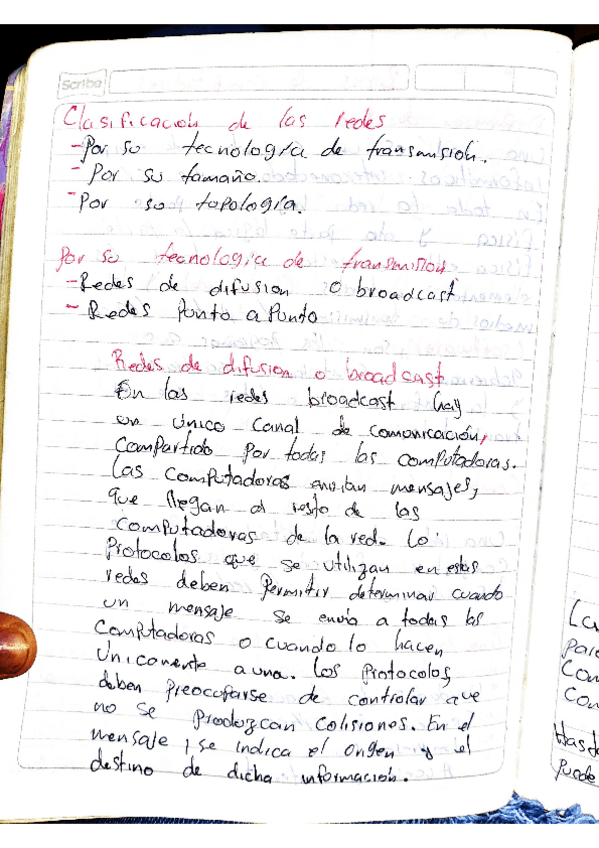 Scribe
Clasificación de las redes
-Por su tecnología de transmisión.
- Por su tamaño.
- Por su topología.
Por su tecnologia de transmision
- Redes de difusion o broadcast
- Redes Punto a Punto
Redes de difusion o broadcast
En las redes broadcast hay
un único canal de comunicación,
compartido por todas las computadoras.
Las computadoras envian mensajes,
que llegan al resto de las
computadoras de la red. Lo
Protocolos que se utilizan en estas
redes deben permitir determinar cuando
un mensaje se envía a todas las
Computadoras o cuando lo hacen
Unicamente a una. Los Protocolos,
deben preocuparse de controlar que
no se produzcan colisiones. En el
mensaje, se indica el origen y el
destino de dicha información.
La
pare
Com
Con
Hasta
Puede